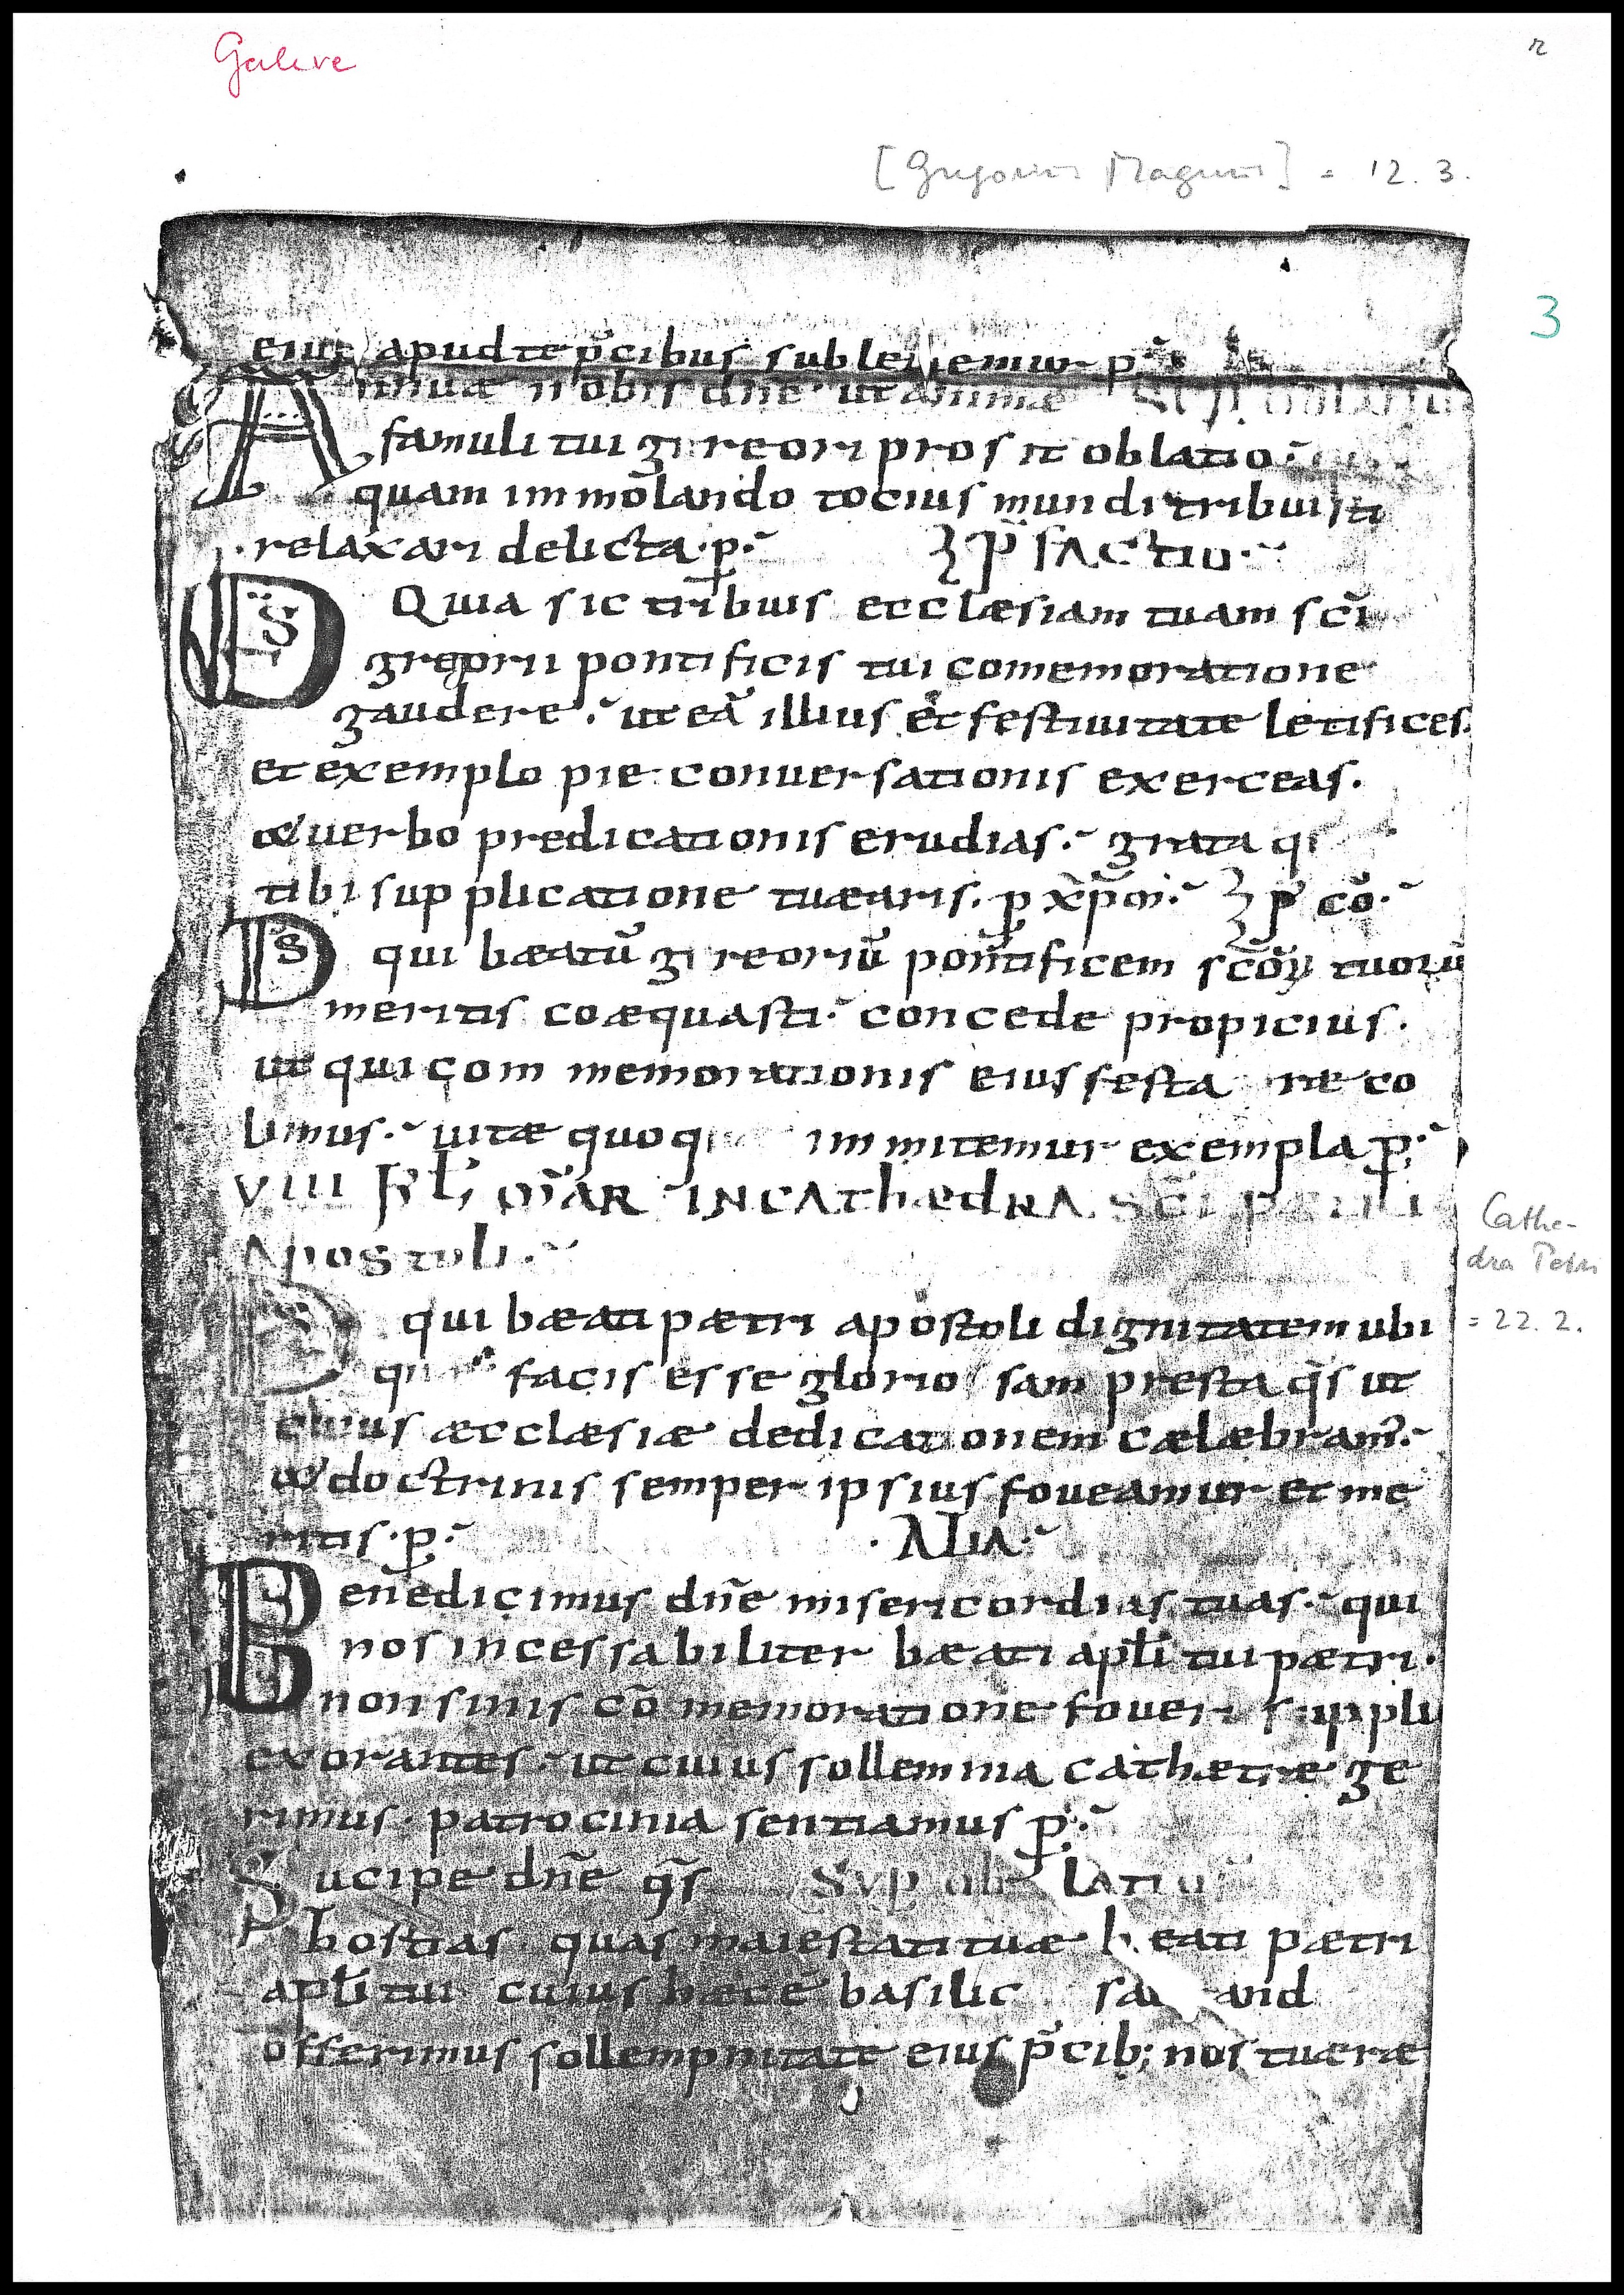 r
[Gregorius Magnus] = 12. 3.
3
eius apud te p̄cibus subleuemur p̄
Annuæ nobis dn̄e ut animæ
famuli tui gregorii prosit oblatio
quam immolando tocius mundi tribuisti
relaxari delicta p̄
DS Quia sic tribuis ecclæsiam tuam sc̄i
gregorii pontificis tui comemoratione
gaudere ut eā illius et festiuitate letifices.
et exemplo pie conuersationis exerceas.
& uerbo predicationis erudias. grata qi
tibi supplicatione tuæaris. p xp̄m
DS qui bæatū gregoriū pontificem sc̄oꝝ tuorū
meritis coæquasti concede propicius.
ut qui commemorationis eius festa co
limus. uitæ quoq immitemur exempla p̄
VIII KL MAR IN CAThædRA SCI PETRI
APOSTOLI
DS qui bæati pætri apostoli dignitatem ubi
facis esse gloriosam presta qs̄ ut
cuius æcclæsiæ dedicationem cælæbram
& doctrinis semper ipsius foueamur et me
ritis. p̄ ALIA
Benedicimus dn̄e misericordias tuas. qui
nos incessabiliter bæati apl̄i tui pætri.
non sinis cōmemoratione foueri suppli
exorantes. ut cuius sollemnia cathætræ ge
rimus. patrocinia sentiamus p̄
Sucipe dn̄e qs̄ SUP OBLATIO
hostias quas maiestati tuæ beati pætri
apl̄i tui cuius hæc ē basilic
offerimus sollempnitate eius p̄cib; nos tuæræ
Cathe-
dra Petri
= 22. 2.